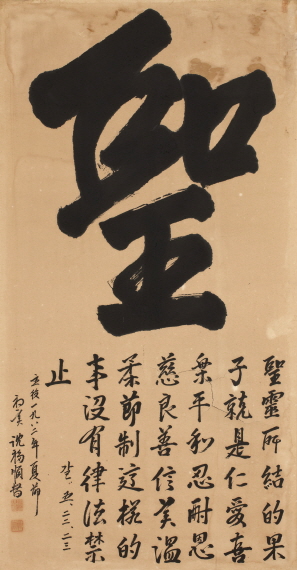 聖
聖靈所結的果
子就是仁愛喜
樂平和忍耐恩
慈良善信実溫
柔節制這樣的
事沒有律法禁
止
갈 五.二二.二三
壬戌一九八二年夏節